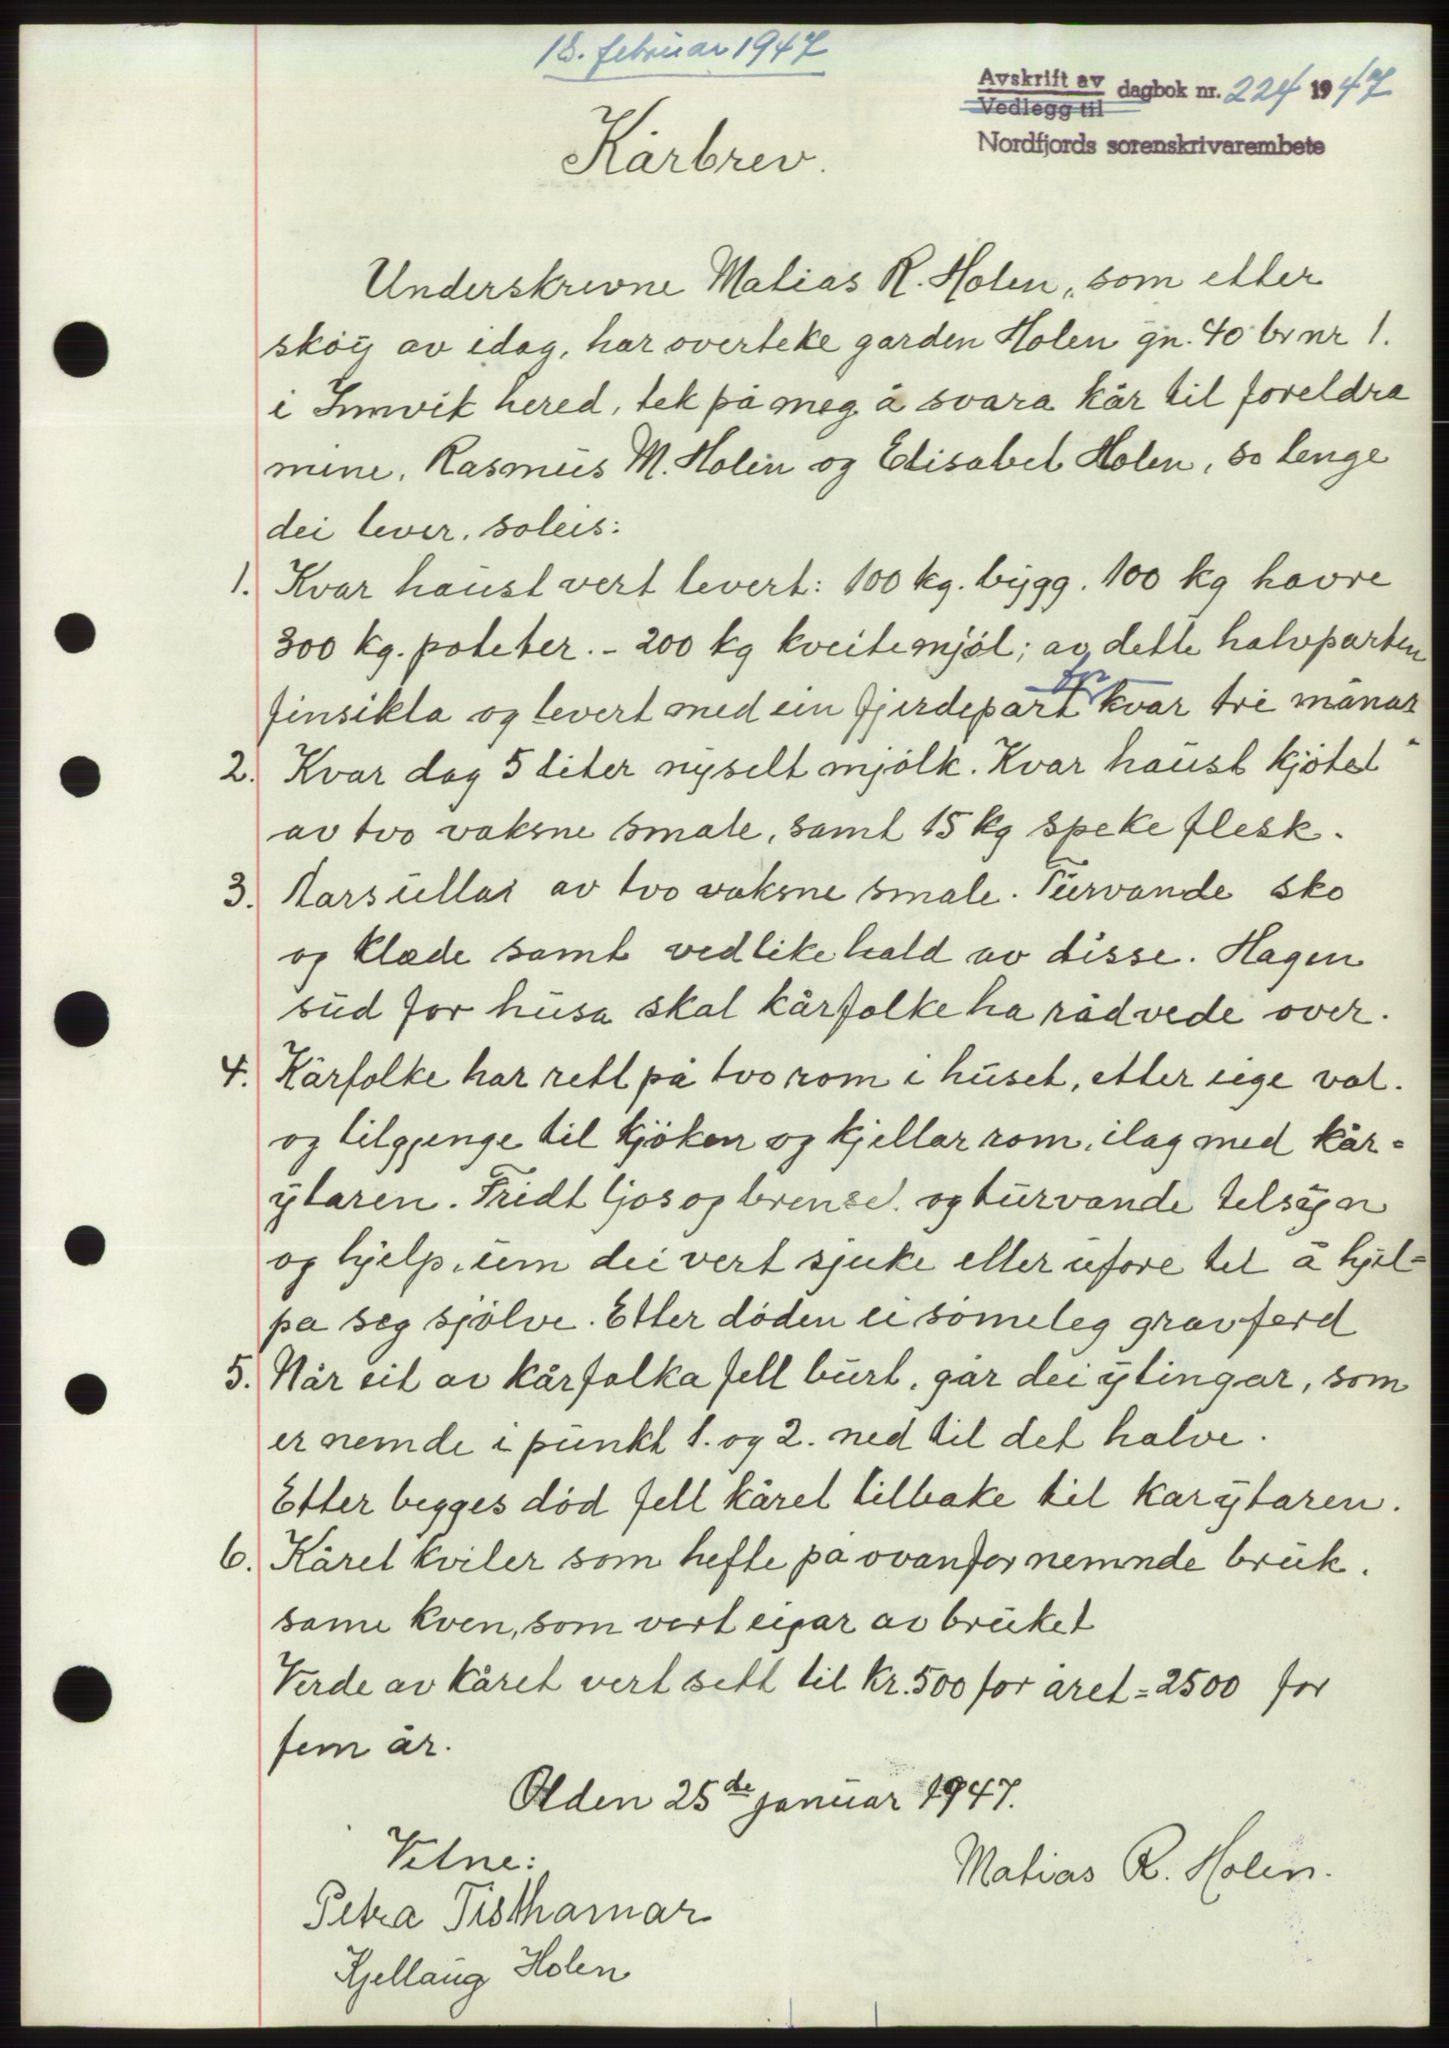 18. februar 1947
Avskrift av
Vedlegg til
dagbok nr. 224 1947
Nordfjords sorenskrivarembete
Kårbrev.
Underskrevne Matias R. Holen, som etter
skøy av idag, har overteke garden Holen gn. 40 br nr 1.
i Innvik hered, tek på meg å svara kår til foreldra
mine, Rasmus M. Holen og Elisabet Holen, so lenge
dei lever, soleis:
1. Kvar haust vert levert: 100 kg. bygg. 100 kg havre
300 kg. poteter. - 200 kg kveitemjøl; av dette halvparten
finsikta og levert med ein fjerdepart kvar tri månar
2. Kvar dag 5 liter nyselt mjølk. Kvar haust kjøtet
av tvo vaksne smale, samt 15 kg speke flesk.
3. Aarsullai av tvo vaksne smale. Turvande sko
og klæde samt vedlikehald av disse. Hagen
sud for husa skal kårfolke ha rådvede over.
4. Kårfolke har rett på tvo rom i huset, etter eige val.
og tilgjenge til kjøken og kjellar rom, ilag med kår-
ytaren. Fridt ljos og brensel. og turvande telsyn
og hjelp, um dei vert sjuke eller ufore tel å hjel=
pa seg sjølve. Etter døden ei sømeleg gravferd
5. Når eit av kårfolka fell burt, går dei ytingar, som
er nemde i punkt 1. og 2. ned til det halve.
Etter begges død fell kåret tilbake til karytaren.
6. Kåret kviler som hefte på ovanfor nemnde bruk.
same kven, som vert eigar av bruket
Verde av kåret vert sett til kr. 500 for året = 2500 for
fem år.
Olden 25de januar 1947.
Vitne:
Matias R. Holen.
Petra Tisthamar
Kjellaug Holen